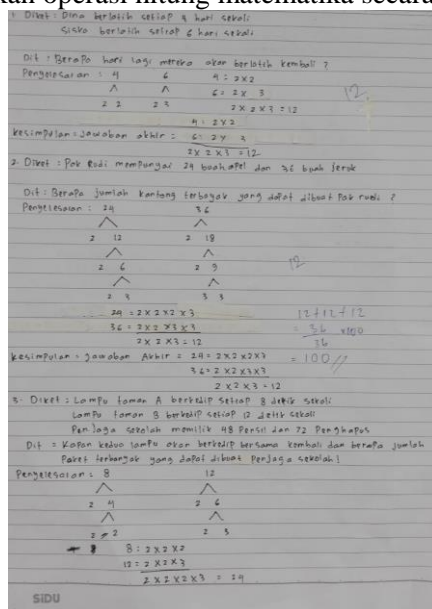 kan operasi hitung matematika secara
1. Diket : Dina berlatih setiap 4 hari sekali
Siska berlatih setiap 6 hari sekali
Dit : Berapa hari lagi mereka akan berlatih kembali ?
Penyelesaian : 4 6 4 : 2x2
2 2 2 3 6 : 2 x 3
2 x 2 x 3 = 12
12
4 : 2 x 2
kesimpulan = Jawaban akhir = 6 : 2 x 3
2 x 2 x 3 = 12
2. Diket : Pak Rudi mempunyai 24 buah apel dan 36 buah Jeruk
Dit : Berapa jumlah kantong terbayak yang dapat dibuat Pak rudi ?
Penyelesaian : 24 36
2 12 2 18
2 6 2 9
12
2 3 3 3
24 = 2 x 2 x 2 x 3
36 = 2 x 2 x 3 x 3
2 x 2 x 3 = 12
12+12+12
= 36 x100
36
= 100 //
kesimpulan = Jawaban Akhir = 24 = 2 x 2 x 2 x 3
36 = 2 x 2 x 3 x 3
2 x 2 x 3 = 12
3. Diket : Lampu taman A berkedip setiap 8 detik sekali
Lampu taman B berkedip setiap 12 detik sekali
Penjaga sekolah memilik 48 Pensil dan 72 Penghapus
Dit = Kapan kedua lampu akan berkedip bersama kembali dan berapa jumlah
Paket terbanyak yang dapat dibuat Penjaga sekolah !
Penyelesaian : 8 12
2 4 2 6
2 2 2 3
8 : 2 x 2 x 2
12 = 2 x 2 x 3
2 x 2 x 2 x 3 = 24
SiDU